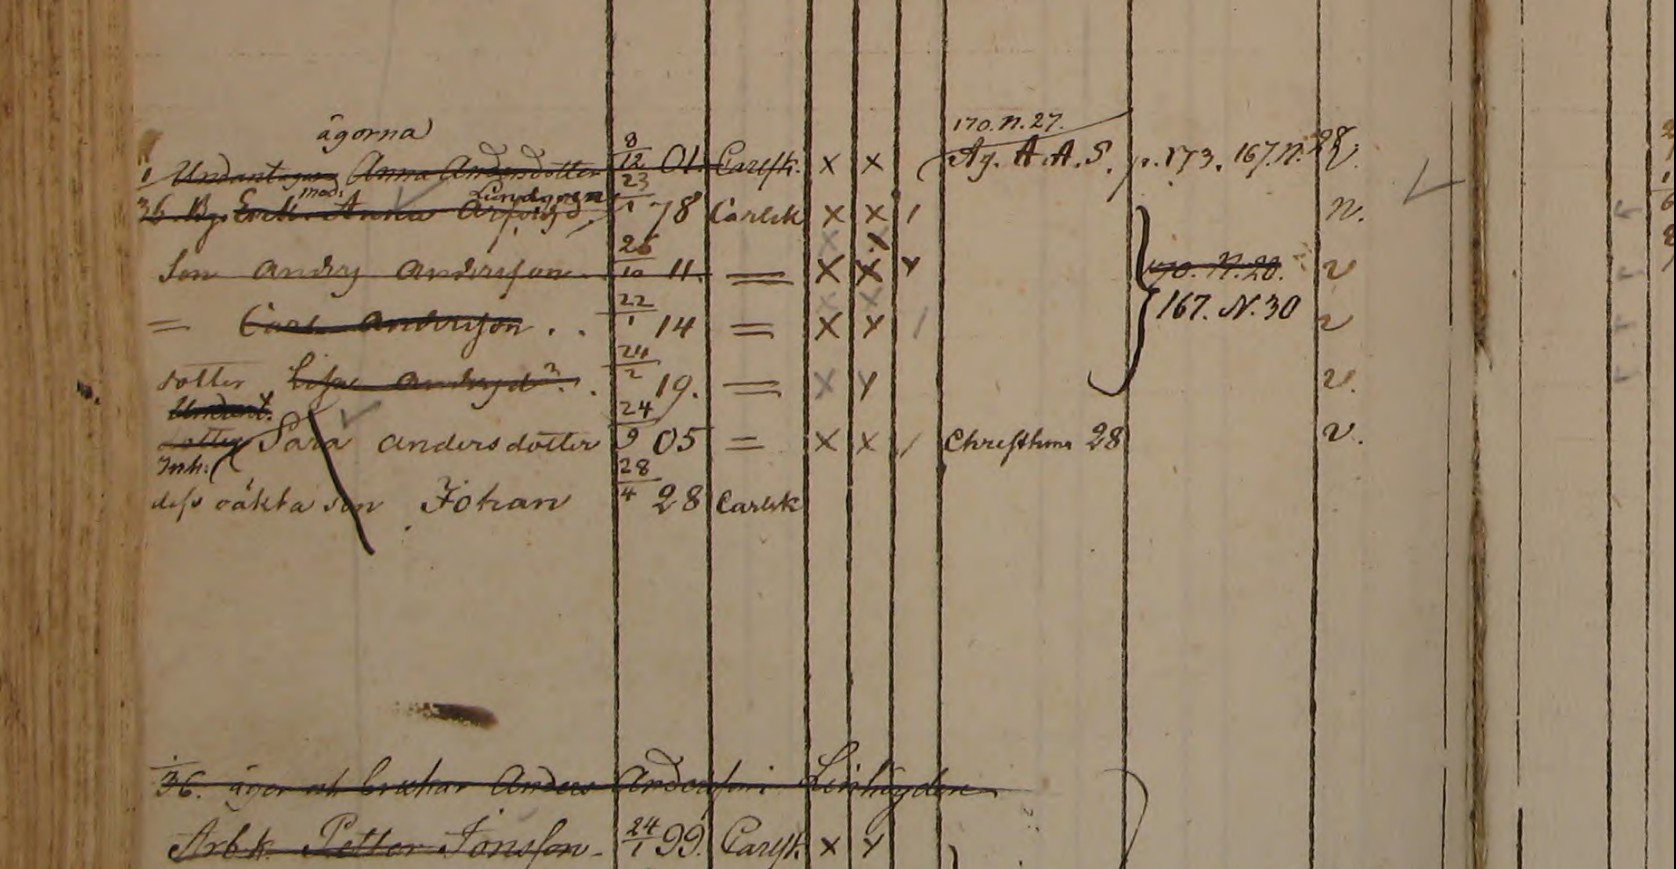 ägorna
170. N. 27.
Anna Andersdotter 8/12 01. Carlsk. x x Ag. A. A. S. p. 173. 167. N. 28 v.
mod. Lundgren
36 Anna Arfvidsd. 23/1 78 Carlsk x x / n.
Son Andrs Andersson 26/10 11. = x x v
170. N. 20.
= Carl Andersson . . 22/1 14 = x x / 167. N. 30 v
dotter Lisa Andersdr. . 24/2 19. = x x v.
Undant.
dotter Sara Andersdotter 24/9 05 = x x / Christhm 28 v.
Inh:
dess oäkta son Johan 28/4 28 Carlsk
36. äger och brukar Anders Andersson i Linhöjden
Arbk. Petter Jonsson 24/1 99. Carlsk x x